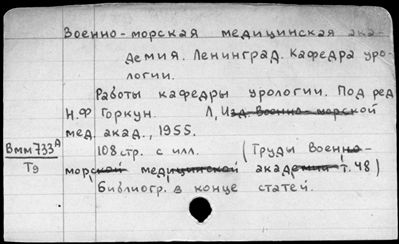 Военно-морская медицинская ака-
демия. Ленинград. Кафедра уро-
логии.
Работы кафедры урологии. Под ред
Н.Ф Горкун. Л, Изд. Военно-морской
мед. акад., 1955.
Вмм733А
Т9
108 стр. с илл. (Труды Военно-
морской медицинской академии т. 48)
Библиогр. в конце статей.